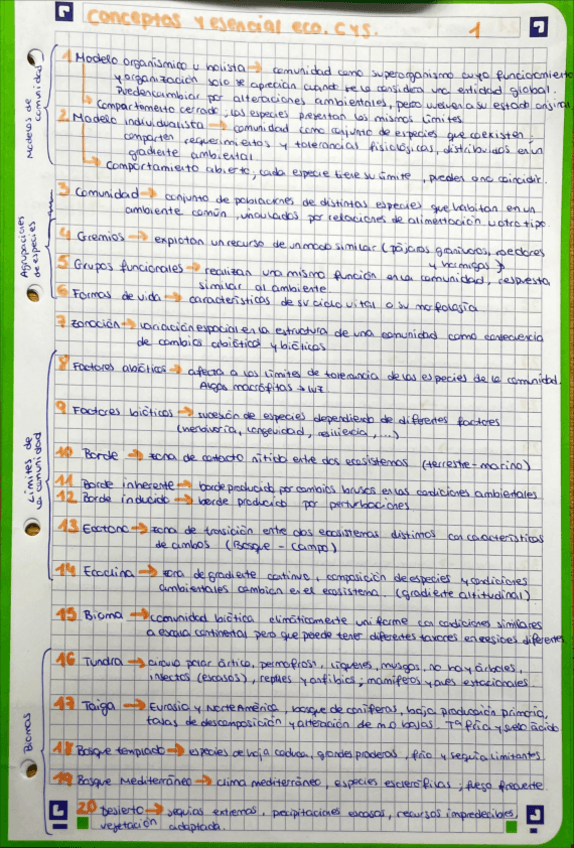 Conceptos y esencial eco. C y S. 1
Modelos de comunidad
1 Modelo organísmico u holista → comunidad como superorganismo cuyo funcionamiento
y organización solo se aprecian cuando se la considera una entidad global.
Pueden cambiar por alteraciones ambientales, pero vuelven a su estado original
↳ Comportamiento cerrado, las especies presentan los mismos límites
2 Modelo individualista → comunidad como conjunto de especies que coexisten,
comparten requerimientos y tolerancias fisiológicas, distribuidos en un
gradiente ambiental
↳ Comportamiento abierto, cada especie tiene su límite, pueden o no coincidir.
Agrupaciones de especies
3 Comunidad → conjunto de poblaciones de distintas especies que habitan en un
ambiente común, vinculados por relaciones de alimentación u otro tipo.
4 Gremios → explotan un recurso de un modo similar (pájaros granívoros, roedores
y hormigas)
5 Grupos funcionales → realizan una misma función en la comunidad, respuesta
similar al ambiente
6 Formas de vida → características de su ciclo vital o su morfología
7 Zonación → variación espacial en la estructura de una comunidad como consecuencia
de cambios abióticos y bióticos
Límites de la comunidad
8 Factores abióticos → afecta a los límites de tolerancia de las especies de la comunidad.
Algas macrófitas → luz
9 Factores bióticos → sucesión de especies dependiendo de diferentes factores
(herbivoría, longevidad, resiliencia, ...)
10 Borde → zona de contacto nítido entre dos ecosistemas (terrestre-marino)
11 Borde inherente → borde producido por cambios bruscos en las condiciones ambientales
12 Borde inducido → borde producido por perturbaciones
13 Ecotono → zona de transición entre dos ecosistemas distintos con características
de ambos (Bosque - Campo)
14 Ecoclina → zona de gradiente continuo, composición de especies y condiciones
ambientales cambian en el ecosistema. (gradiente altitudinal)
15 Bioma → comunidad biótica climáticamente uniforme con condiciones similares
a escala continental pero que puede tener diferentes taxones en regiones diferentes
Biomas
16 Tundra → círculo polar ártico, permafrost, líquenes, musgos, no hay árboles,
insectos (escasos), reptiles y anfibios; mamíferos y aves estacionales
17 Taiga → Eurasia y Norte América, bosque de coníferas, baja producción primaria,
tasas de descomposición y alteración de m.o bajas. Tª fría y suelo ácido
18 Bosque templado → especies de hoja caduca, grandes praderas, frío y sequía limitantes.
19 Bosque Mediterráneo → clima mediterráneo, especies esclerófilas; fuego frecuente
20 Desierto → sequías extremas, precipitaciones escasas, recursos impredecibles,
vegetación adaptada.